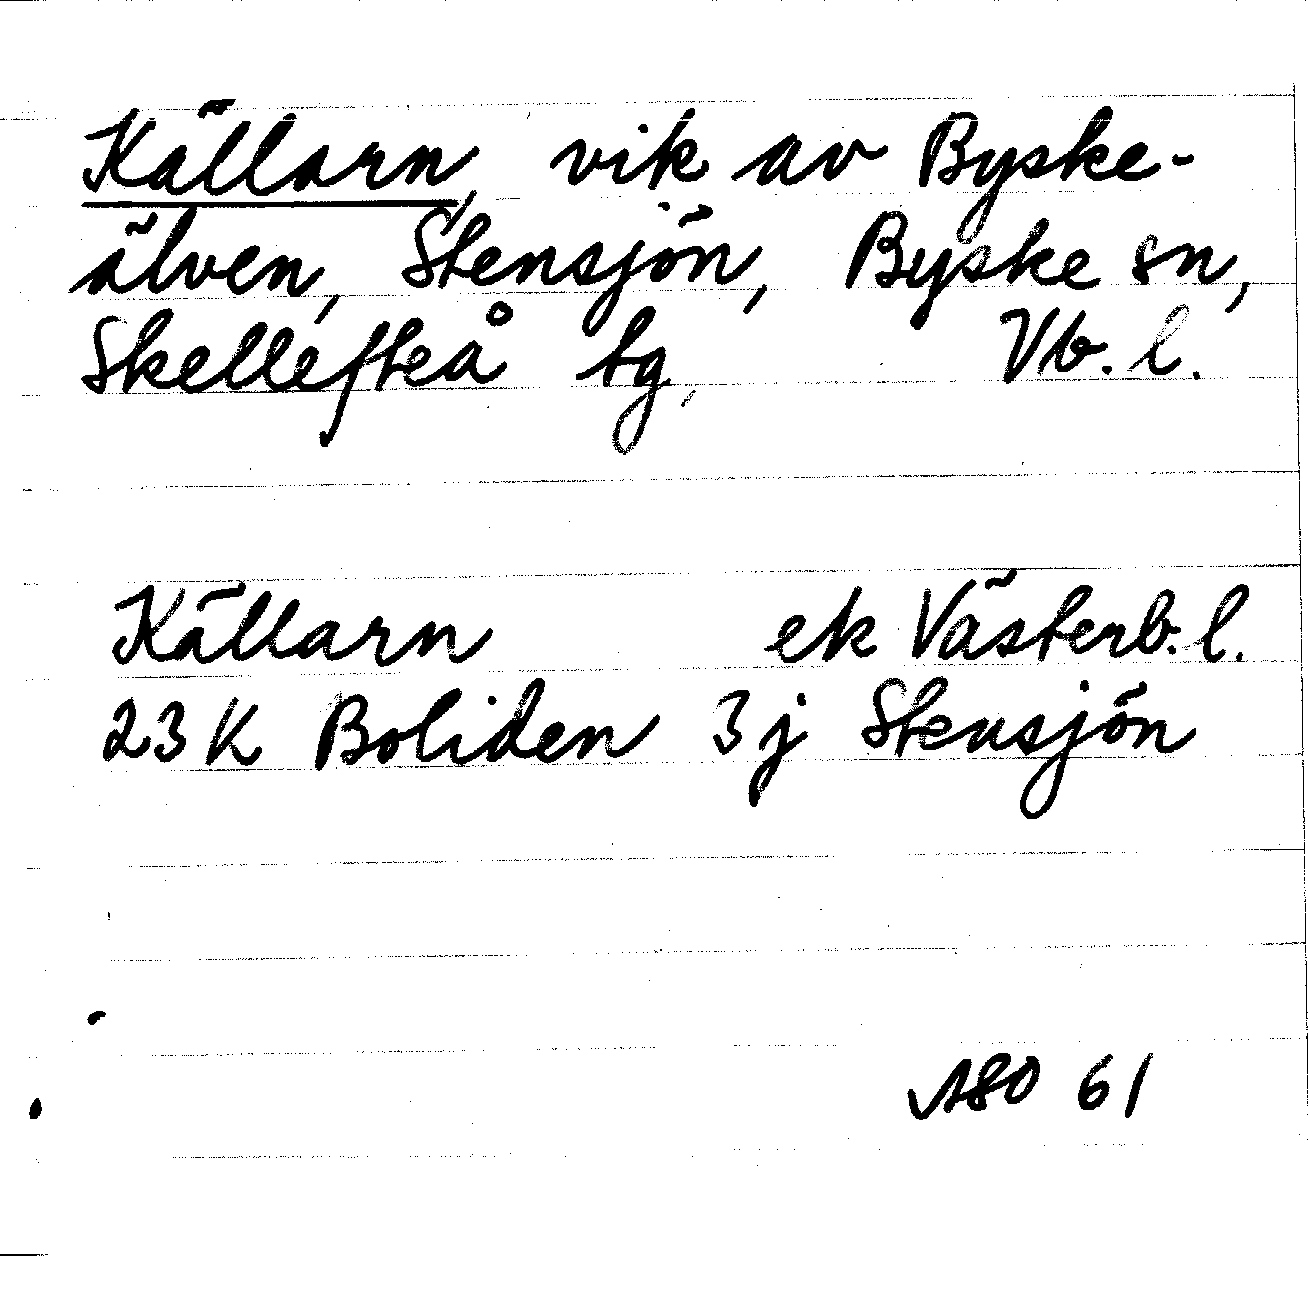 Källarn, vik av Byske-
älven, Stensjön, Byske sn,
Skellefteå tg, Vb. l.
Källarn ek Västerb. l.
23 K Boliden 3 j Stensjön
61